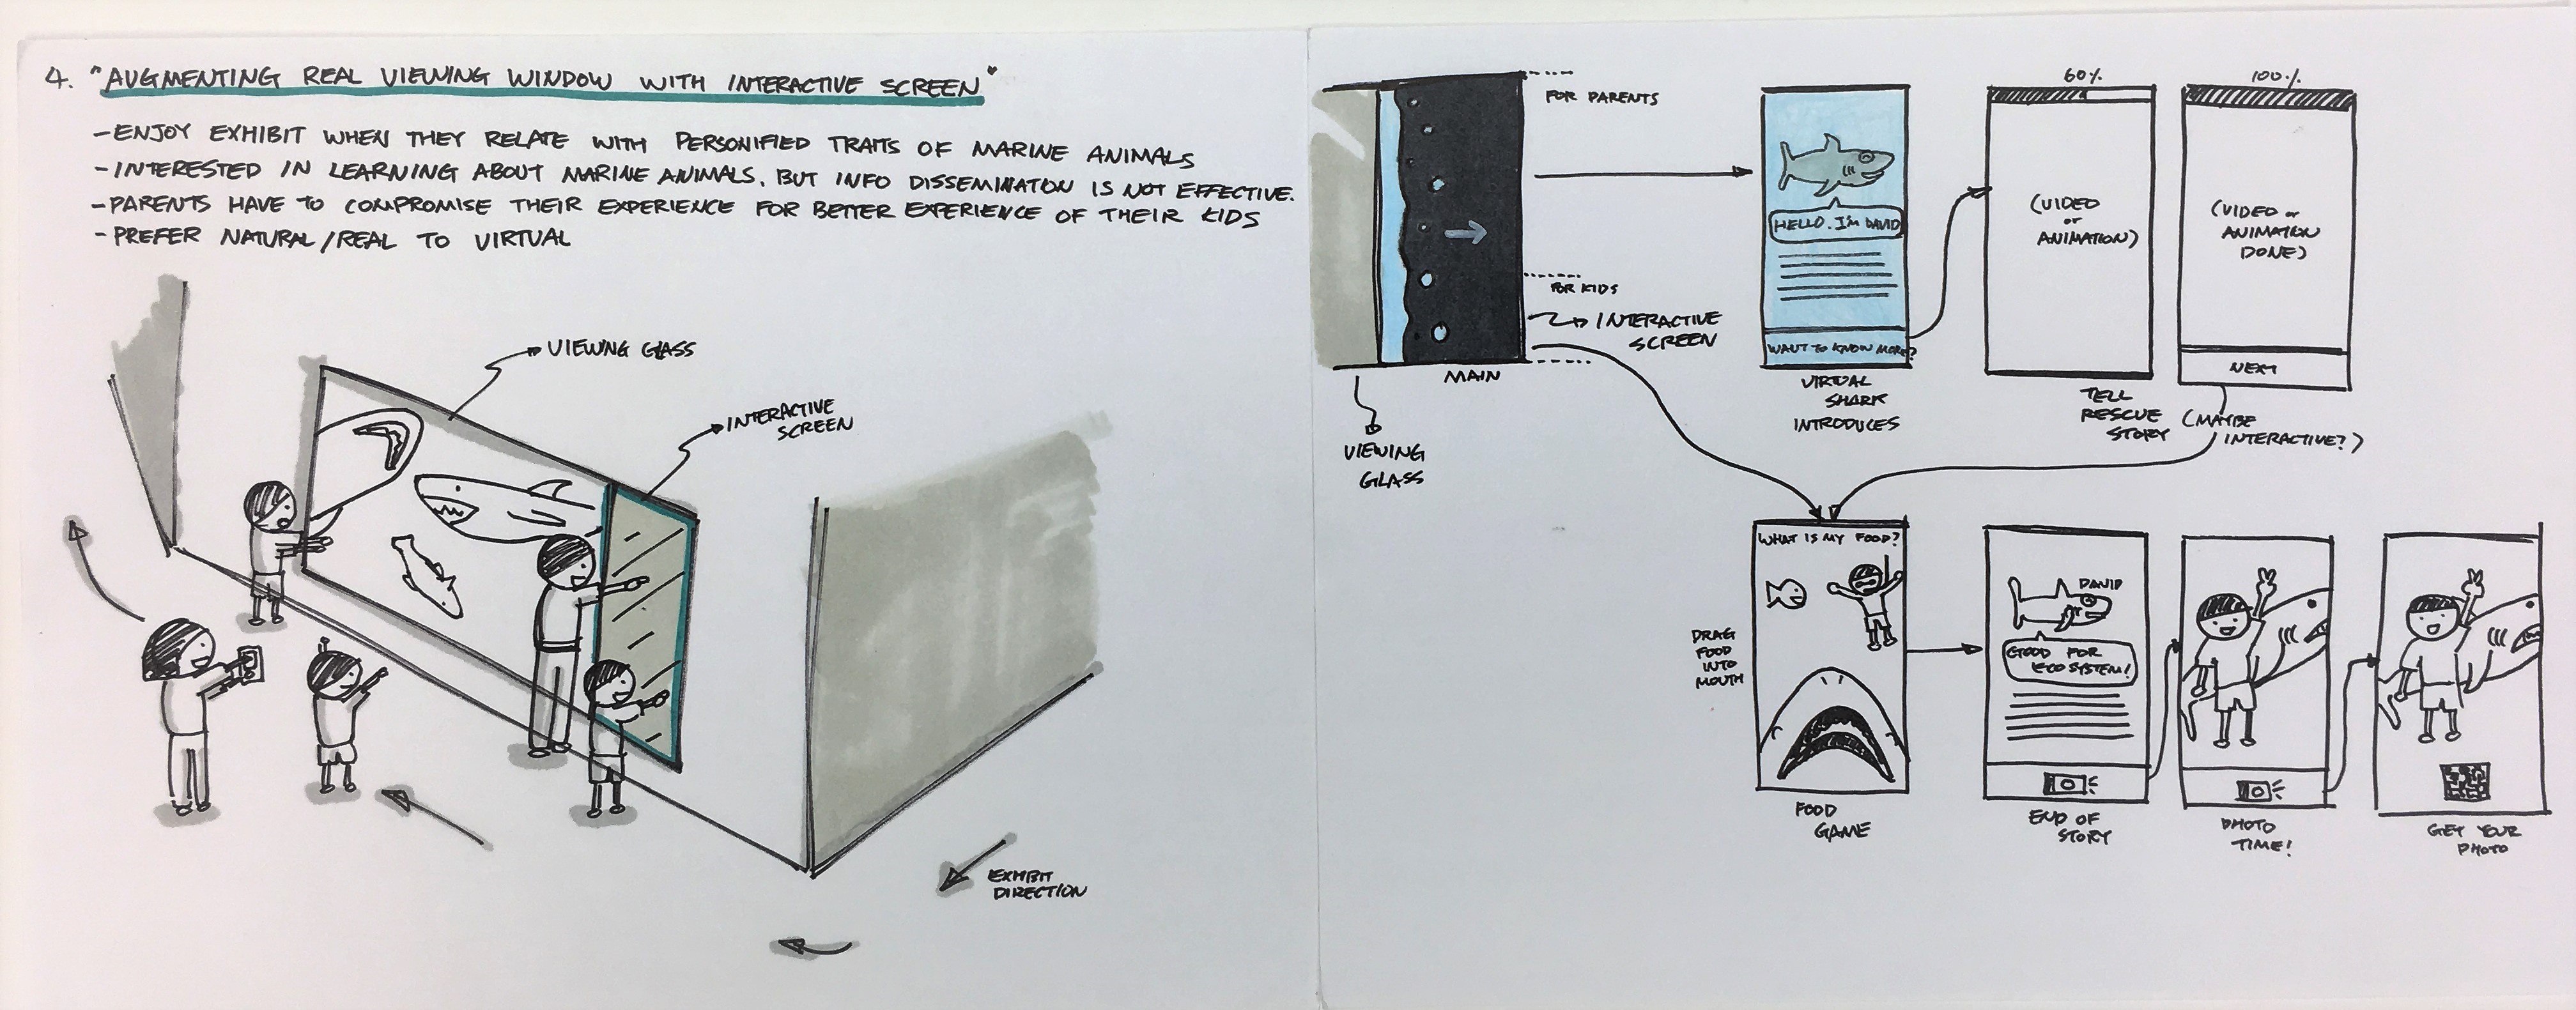 4. "AUGMENTING REAL VIEWING WINDOW WITH INTERACTIVE SCREEN"
- ENJOY EXHIBIT WHEN THEY RELATE WITH PERSONIFIED TRAITS OF MARINE ANIMALS
- INTERESTED IN LEARNING ABOUT MARINE ANIMALS, BUT INFO DISSEMINATION IS NOT EFFECTIVE.
- PARENTS HAVE TO COMPROMISE THEIR EXPERIENCE FOR BETTER EXPERIENCE OF THEIR KIDS
- PREFER NATURAL/REAL TO VIRTUAL
VIEWING GLASS
INTERACTIVE
SCREEN
EXHIBIT
DIRECTION
FOR PARENTS
FOR KIDS
INTERACTIVE
SCREEN
MAIN
VIEWING
GLASS
HELLO. I'M DAVID
WANT TO KNOW MORE?
VIRTUAL
SHARK
INTRODUCES
60%
(VIDEO
or
ANIMATION)
TELL
RESCUE
STORY
100%
(VIDEO or
ANIMATION
DONE)
NEXT
(MAYBE
INTERACTIVE?)
WHAT IS MY FOOD?
DRAG
FOOD
INTO
MOUTH
FOOD
GAME
DAVID
GOOD FOR
ECOSYSTEM!
END OF
STORY
PHOTO
TIME!
GET YOUR
PHOTO